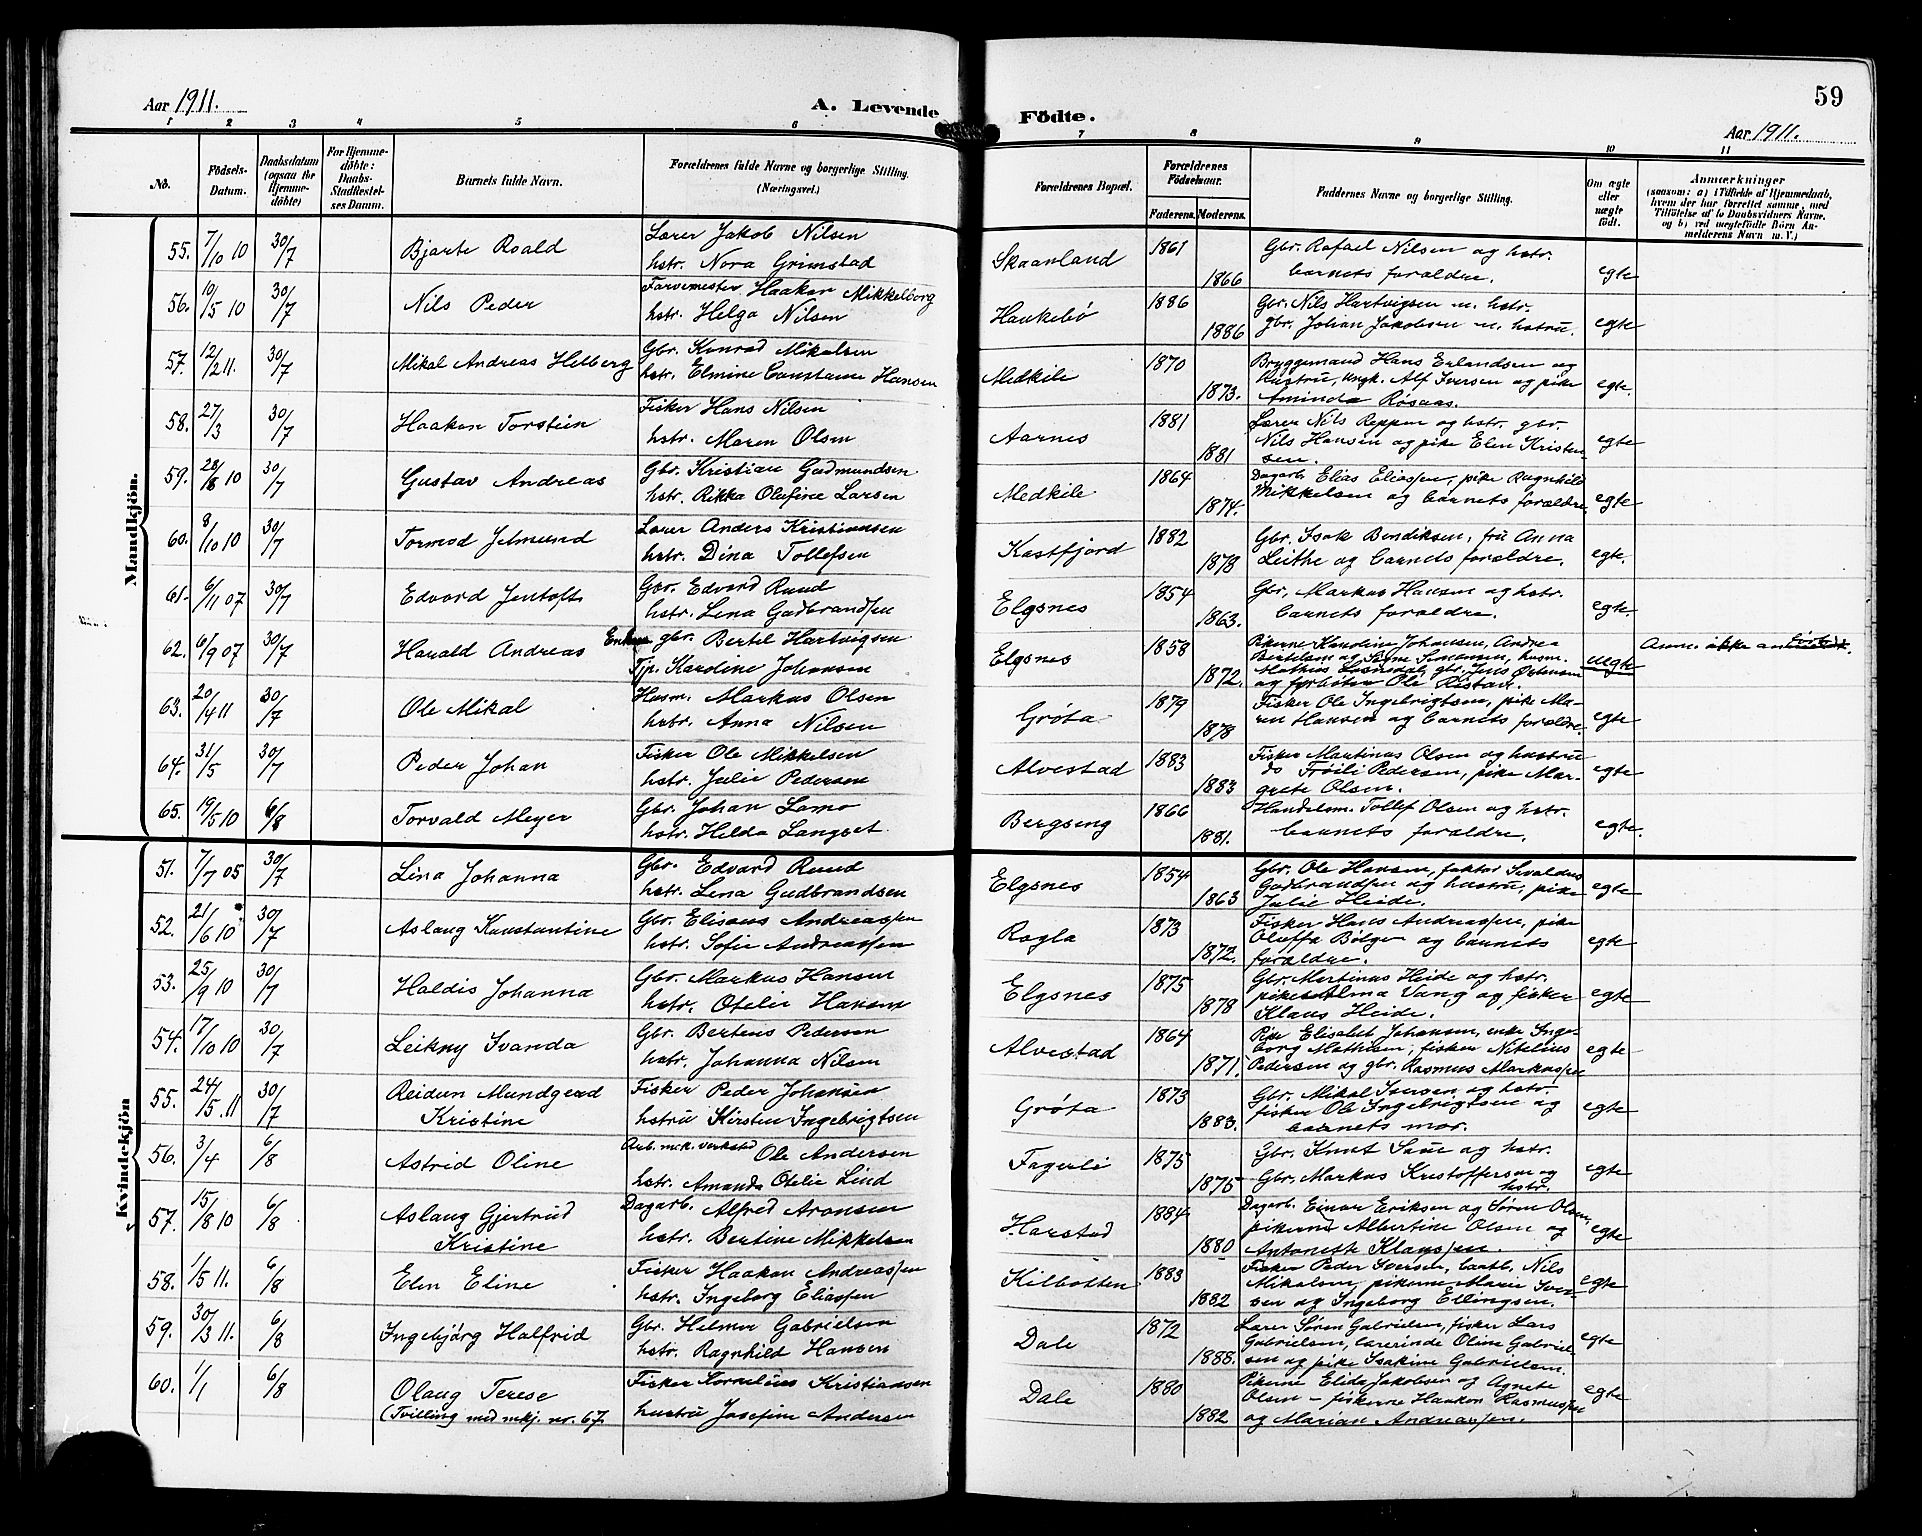 Aar 1911.
A. Levende
Födte.
59
Aar 1911.
1 2 3 4 5 6 7 8 9 10 11
No.
Födsels-Datum.
Daabsdatum (ogsaa for Hjemme-döbte)
For Hjemme-döbte: Daabs-Stadfæstel-ses Datum.
Barnets fulde Navn.
Forældrenes fulde Navne og borgerlige Stilling. (Næringsvei.)
Forældrenes Bopæl.
Forældrenes Födselsaar.
Faderens. Moderens.
Faddernes Navne og borgerlige Stilling.
Om ægte eller uægte födt.
Anmærkninger
(saasom: a) i Tilfælde af Hjemmedaab,
hvem der har forrettet samme, med
Tilföielse af to Daabsvidners Navne.
og b) ved uægtefödte Börn An-
melderens Navn m. V.)
Mandkjön.
55. 7/10 10 30/7 Bjarte Roald Lærer Jakob Nilsen Skaanland 1861 Gbr. Rafael Nilsen og hstr.
hstr. Nora Grimstad 1866 barnets forældre. egte
56. 19/5 10 30/7 Nils Peder Farvemester Haakon Mikkelborg Haukebö 1886 Gbr. Nils Hartvigsen m. hstr.
hstr. Helga Nilsen 1886 gbr. Johan Jakobsen m. hstru. egte
57. 12/2 11. 30/7 Mikal Andreas Helberg Gbr. Konrad Mikalsen Medkile 1870 Bryggemand Hans Erlandsen og
hstr. Elmine Constance Hansen 1873. hustru, ungk. Alf Iversen og pike egte.
Aminda Røsaas.
58. 27/3 30/7 Haakon Torstein Fisker Hans Nilsen Aarnes 1881 Lærer Nils Reppen og hstr. gbr.
hstr. Maren Olsen 1881 Nils Hansen og pike Elen Kristen- egte
sen.
59. 28/8 10 30/7 Gustav Andreas Gbr. Kristian Gudmundsen Medkile 1864 Dagarb. Elias Eliassen, pike Ragnhild
hstr. Rikka Olufine Larsen 1874. Mikkelsen og barnets forældre. egte
60. 8/10 10 30/7 Tormod Jelmund Lærer Anders Kristiansen Kastfjord 1882 Gbr. Isak Bendiksen, fru Anna
hstr. Dina Tollefsen 1878 Leithe og barnets forældre. egte.
61. 6/11 07 30/7 Edvard Jentoft Gbr. Edvard Ruud Elgsnes 1854 Gbr. Markus Hansen og hstr.
hstr. Lina Gudbrandsen 1863. barnets forældre. egte.
62. 6/9 07 30/7 Harald Andreas Enkem. gbr. Bertel Hartvigsen Elgsnes 1858 Pikerne Karoline Johansen, Andrea
Tjp. Karoline Johansen 1872. Bertelsen og Signe Simonsen, husm. uegte
Mathis, gbr. Jens
og Ole Ristad. Anm. ikke
63. 20/4 11 30/7 Ole Mikal Husm. Markus Olsen Gröta 1879 Fisker Ole Ingebrigtsen, pike Ma-
hstr. Anna Nilsen 1878 ren Hansen og barnets forældre. egte
64. 31/5 30/7 Peder Johan Fisker Ole Mikkelsen Alvestad 1883 Fisker Martinus Olsen og hustru
hstr. Julie Pedersen 1883 do Fröili Pedersen, pike Mar- egte
grete Olsen.
65. 19/5 10 6/8 Torvald Meyer Gbr. Johan Lamo Bergseng 1866 Handelsm. Tollef Olsen og hstr.
hstr. Hilda Langset 1881. barnets forældre. egte.
Kvindekjön
51. 7/7 05 30/7 Lina Johanna Gbr. Edvard Ruud Elgsnes 1854 Gbr. Ole Hansen, faktor Sivaldus
hstr. Lena Gudbrandsen 1863 Gudbrandsen og hustru, pike egte
Julie Heide.
52. 21/6 10 30/7 Aslaug Konstantine Gbr. Elisæus Andreassen Rogla 1873 Fisker Hans Andreassen, pike
hstr. Sofie Andreassen 1872. Oluffa Bölge og barnets egte
forældre.
53. 25/9 10 30/7 Haldis Johanna Gbr. Markus Hansen Elgsnes 1875 Gbr. Martinus Heide og hstr.
hstr. Otelie Hansen 1878 pike Alma Vang og fisker egte
Klaus Heide.
54. 17/10 10 30/7 Leikny Ivanda Gbr. Bertens Pedersen Alvestad 1864 Pike Elisabet Johansen, enke Inge-
hstr. Johanna Nilsen 1871. borg Mathisen, fisker Nitelius egte
Pedersen og gbr. Rasmus Markussen
55. 24/5. 11 30/7 Reidun Mundgerd Fisker Peder Johansen Gröta 1873 Gbr. Mikal Iversen og hstr.
Kristine hstru Kirsten Ingebrigtsen 1883. fisker Ole Ingebrigtsen og egte
barnets mor.
56. 3/4 6/8 Astrid Oline Arb. mek. verksted Ole Andersen Fagerli 1875 Gbr. Knut Saue og hstr.
hstr. Amanda Otelie Lind 1875 Gbr. Markus Kristoffersen og egte
hstr.
57. 15/8 10 6/8 Aslaug Gjertrud Dagarb. Alfred Aronsen Harstad 1884 Dagarb. Einar Eriksen og Sören Olsen,
Kristine hstr. Bertine Mikkelsen 1880 pikerne Albertine Olsen og egte
Antonette Klaussen.
58. 1/5 11. 6/8 Elen Eline Fisker Haakon Andreassen Kilbotten 1883 Fisker Peder Iversen, Nils
hstr. Ingeborg Eliassen 1882 Mikalsen, pikerne Marie Iver- egte
sen og Ingeborg Ellingsen.
59. 30/3 11. 6/8 Ingebjörg Halfrid Gbr. Helmer Gabrielsen Dale 1872 Lærer Sören Gabrielsen, fisker Lars
hstr. Ragnhild Hansen 1888. Gabrielsen, lærerinde Oline Gabriel- egte
sen og pike Isakine Gabrielsen.
60. 1/1 6/8 Olaug Terese Fisker Kornelius Kristiansen Dale 1880 Pikerne Elida Jakobsen og Agnete
(Tvilling med mkj. nr. 67. hustru Josefine Andersen 1882 Olsen – fiskerne Haakon Rasmussen egte
og Marian Andreassen.